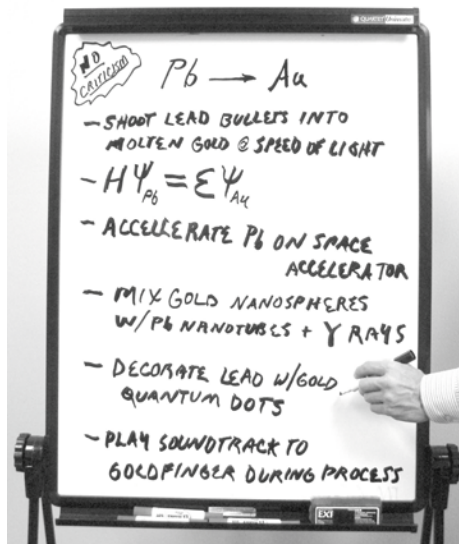 QUARTET
NO
CRITICISM
Pb → Au
- SHOOT LEAD BULLETS INTO
MOLTEN GOLD @ SPEED OF LIGHT
- HΨPb = EΨAu
- ACCELLERATE Pb ON SPACE
ACCELERATOR
- MIX GOLD NANOSPHERES
W/Pb NANOTUBES + γ RAYS
- DECORATE LEAD W/GOLD
QUANTUM DOTS
- PLAY SOUNDTRACK TO
GOLDFINGER DURING PROCESS